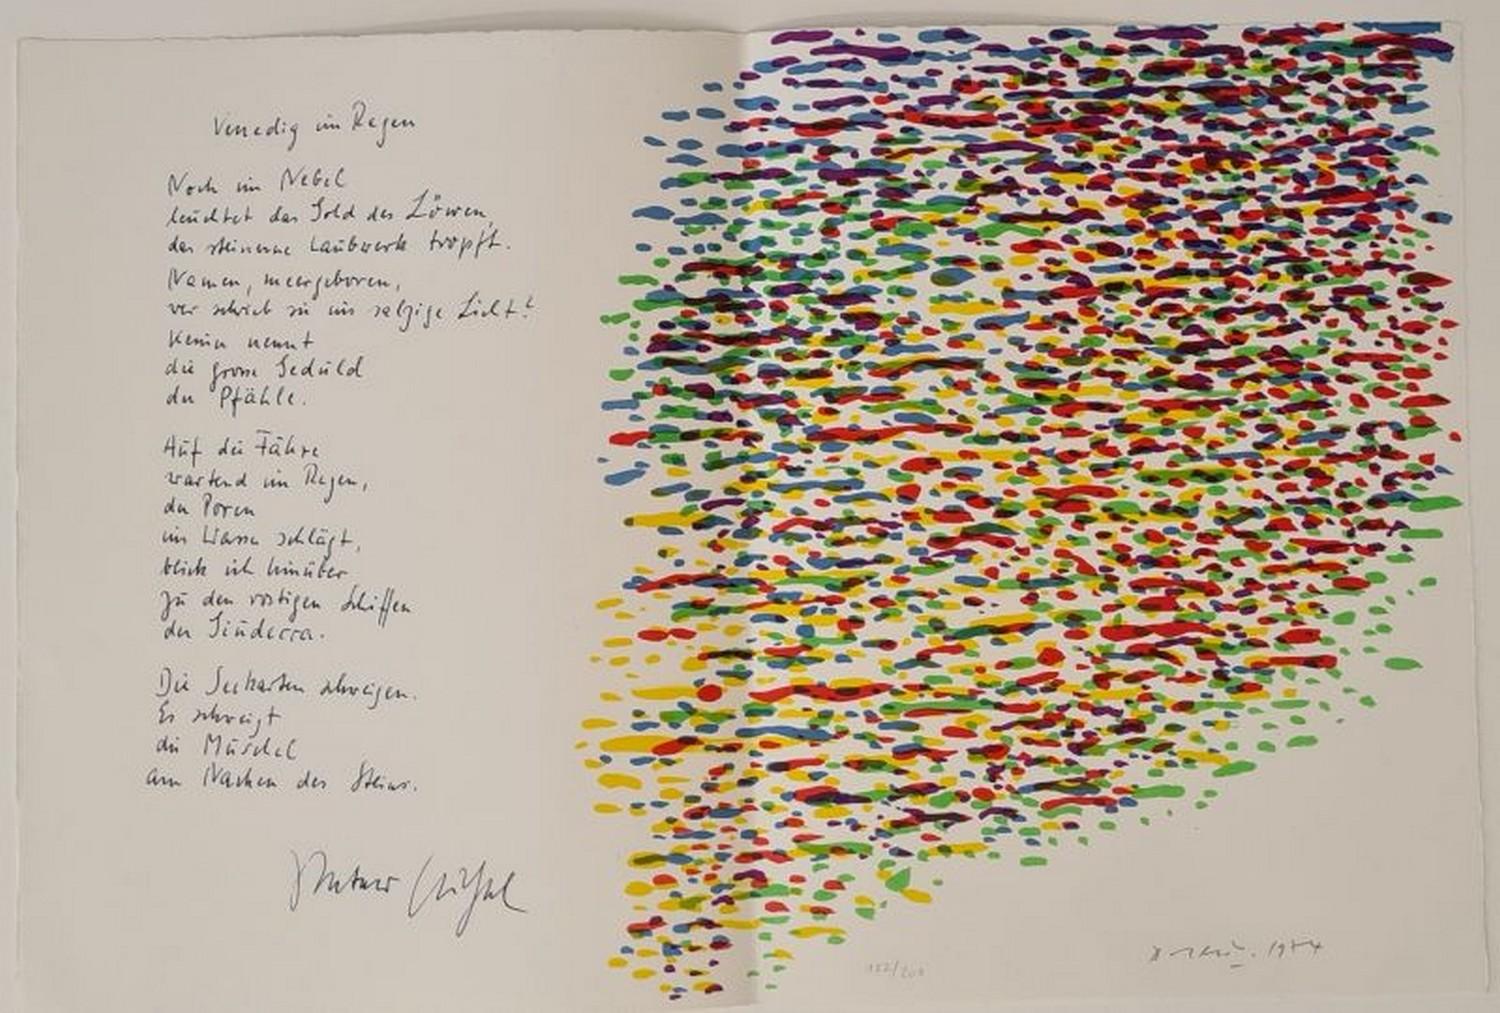 Venedig im Regen
Noch im Nebel
leuchtet das Gold des Löwen,
das steinerne Laubwerk tropft.
Namen, meergeboren,
wer schrieb sie ins salzige Licht?
Keiner nennt
die grosse Geduld
der Pfähle.
Auf die Fähre
wartend im Regen,
der Poren
ins Wasser schlägt,
blick ich hinüber
zu den rostigen Schiffen
der Giudecca.
Die Seekarten schweigen.
Es schweigt
die Muschel
am Nacken des Steins.
152/200